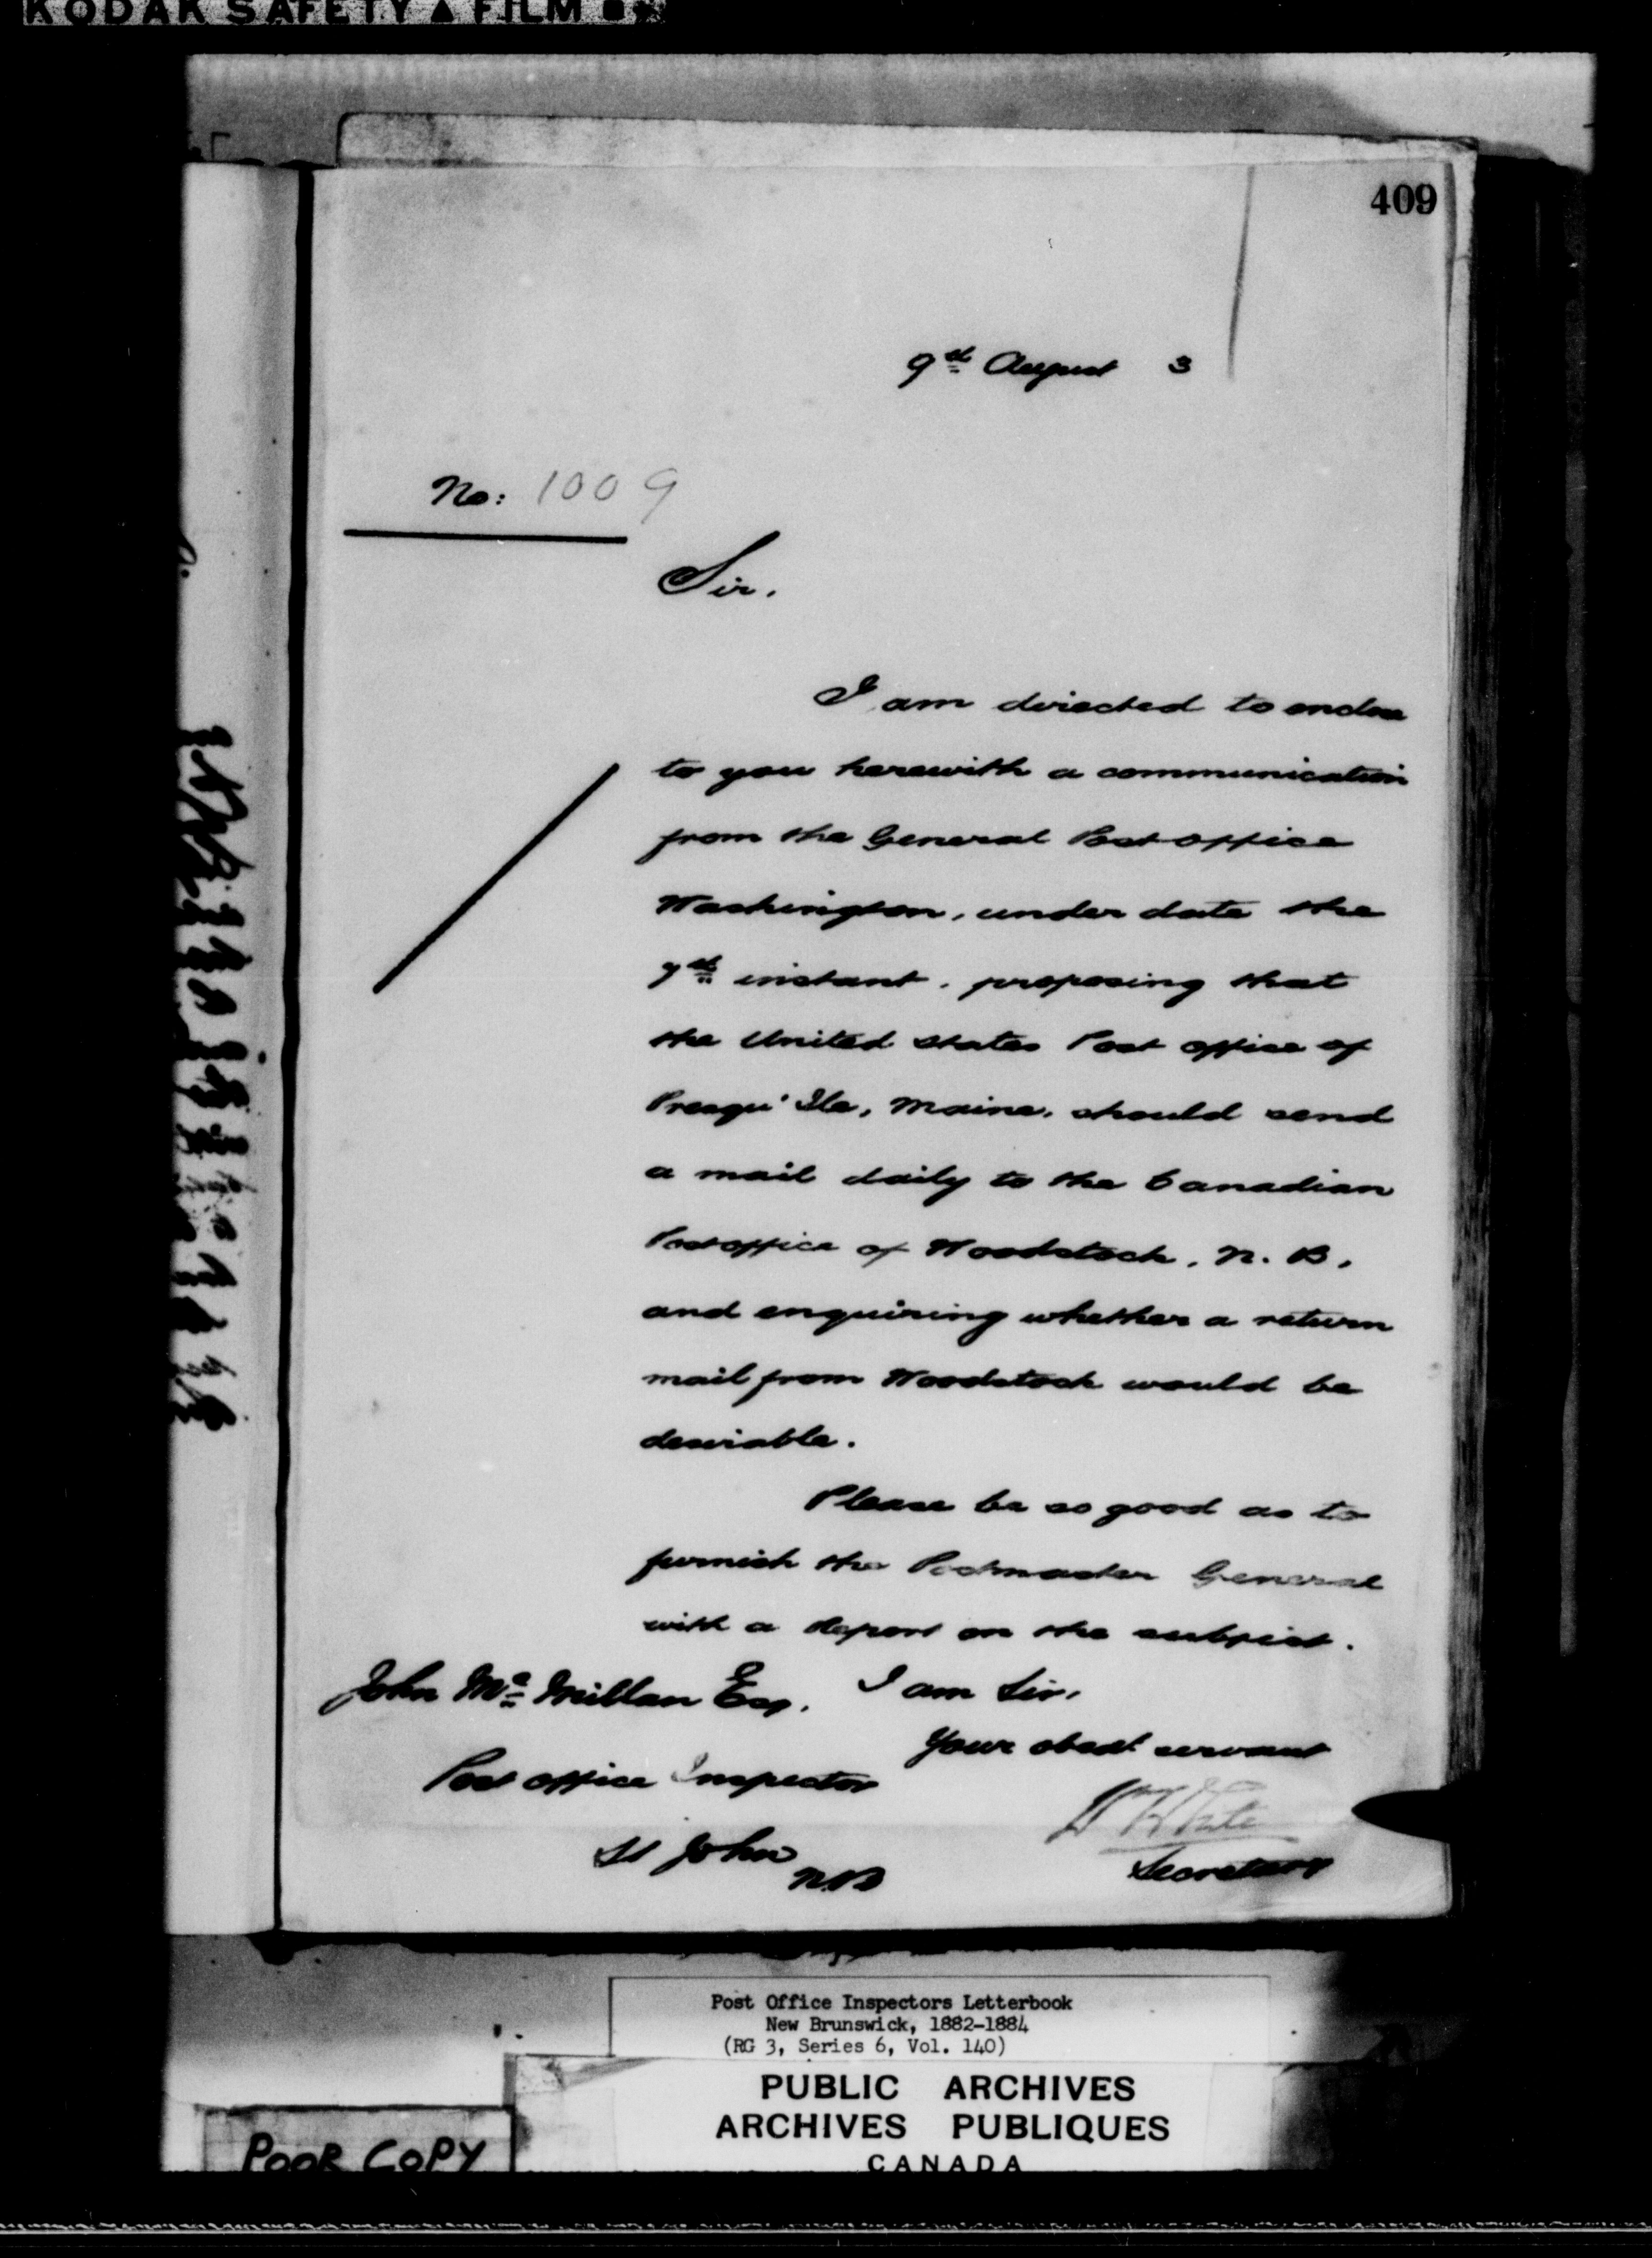 KODAK SAFETY ▲ FILM
409
9th August 3
No: 1009
Sir.
I am directed to enclose
to you herewith a communication
from the General Post office
Washington, under date the
7th instant, proposing that
the United States Post office of
Presqu' Ile, Maine, should send
a mail daily to the Canadian
Post office of Woodstock, N. B,
and enquiring whether a return
mail from Woodstock would be
desirable.
Please be so good as to
furnish the Postmaster General
with a Report on the subject.
I am Sir,
Your obedt servant
W White
Secretary
John Mc Millan Esq.
Post office Inspector
St John
N.B
Post Office Inspectors Letterbook
New Brunswick, 1882-1884
(RG 3, Series 6, Vol. 140)
PUBLIC ARCHIVES
ARCHIVES PUBLIQUES
CANADA
POOR COPY